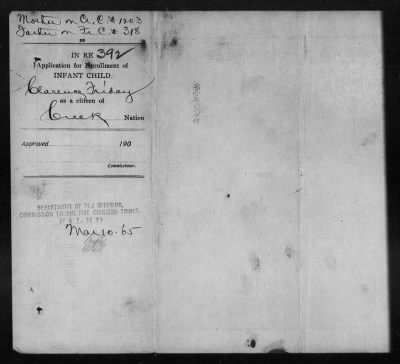 Mother on Cr. C. # 1203
Father on Fr. C. # 318
IN RE 392
Application for Enrollment of
INFANT CHILD.
Clarence Friday
as a citizen of
Creek Nation
Approved 190
Commissioner.
DEPARTMENT OF THE INTERIOR,
COMMISSION TO THE FIVE CIVILIZED TRIBES.
Mar 10-05